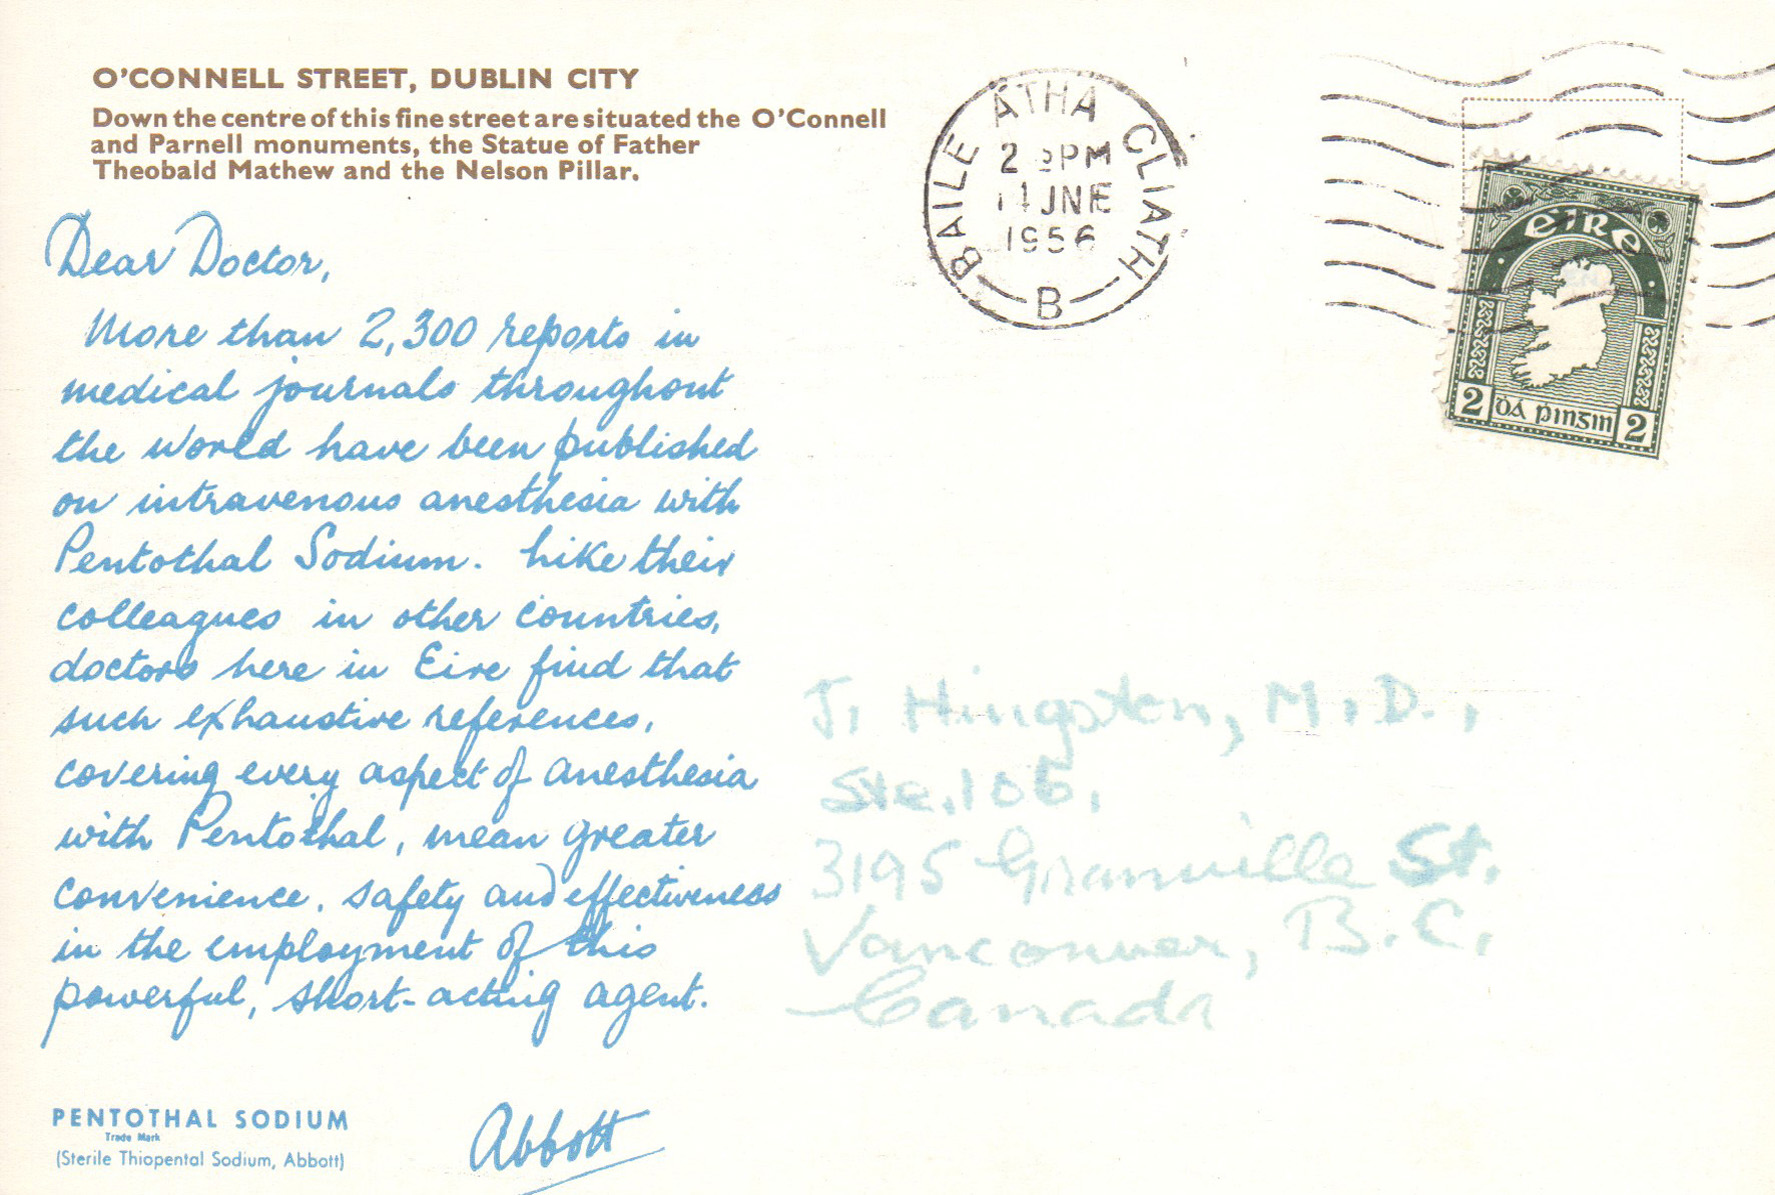 O'CONNELL STREET, DUBLIN CITY
Down the centre of this fine street are situated the O'Connell
and Parnell monuments, the Statue of Father
Theobald Mathew and the Nelson Pillar.
Dear Doctor,
More than 2,300 reports in
medical journals throughout
the world have been published
on intravenous anesthesia with
Pentothal Sodium. Like their
colleagues in other countries,
doctors here in Eire find that
such exhaustive references,
covering every aspect of anesthesia
with Pentothal, mean greater
convenience, safety and effectiveness
in the employment of this
powerful, short-acting agent.
PENTOTHAL SODIUM
Trade Mark
(Sterile Thiopental Sodium, Abbott)
Abbott
BAILE ÁTHA CLIATH
PM
JNE
1956
B
éIRe
2 Dá pinginn 2
J. Hingston, M.D.,
Ste.
3195 Granville St.
Vancouver, B.C.
Canada